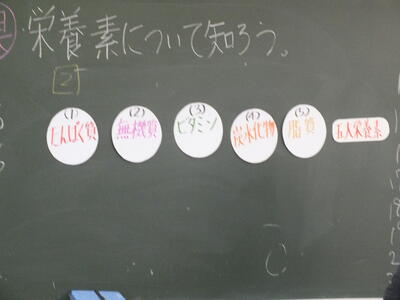 栄養素について知ろう。
2
(1) (2) (3) (4) (5)
たんぱく質 無機質 ビタミン 炭水化物 脂質 五大栄養素